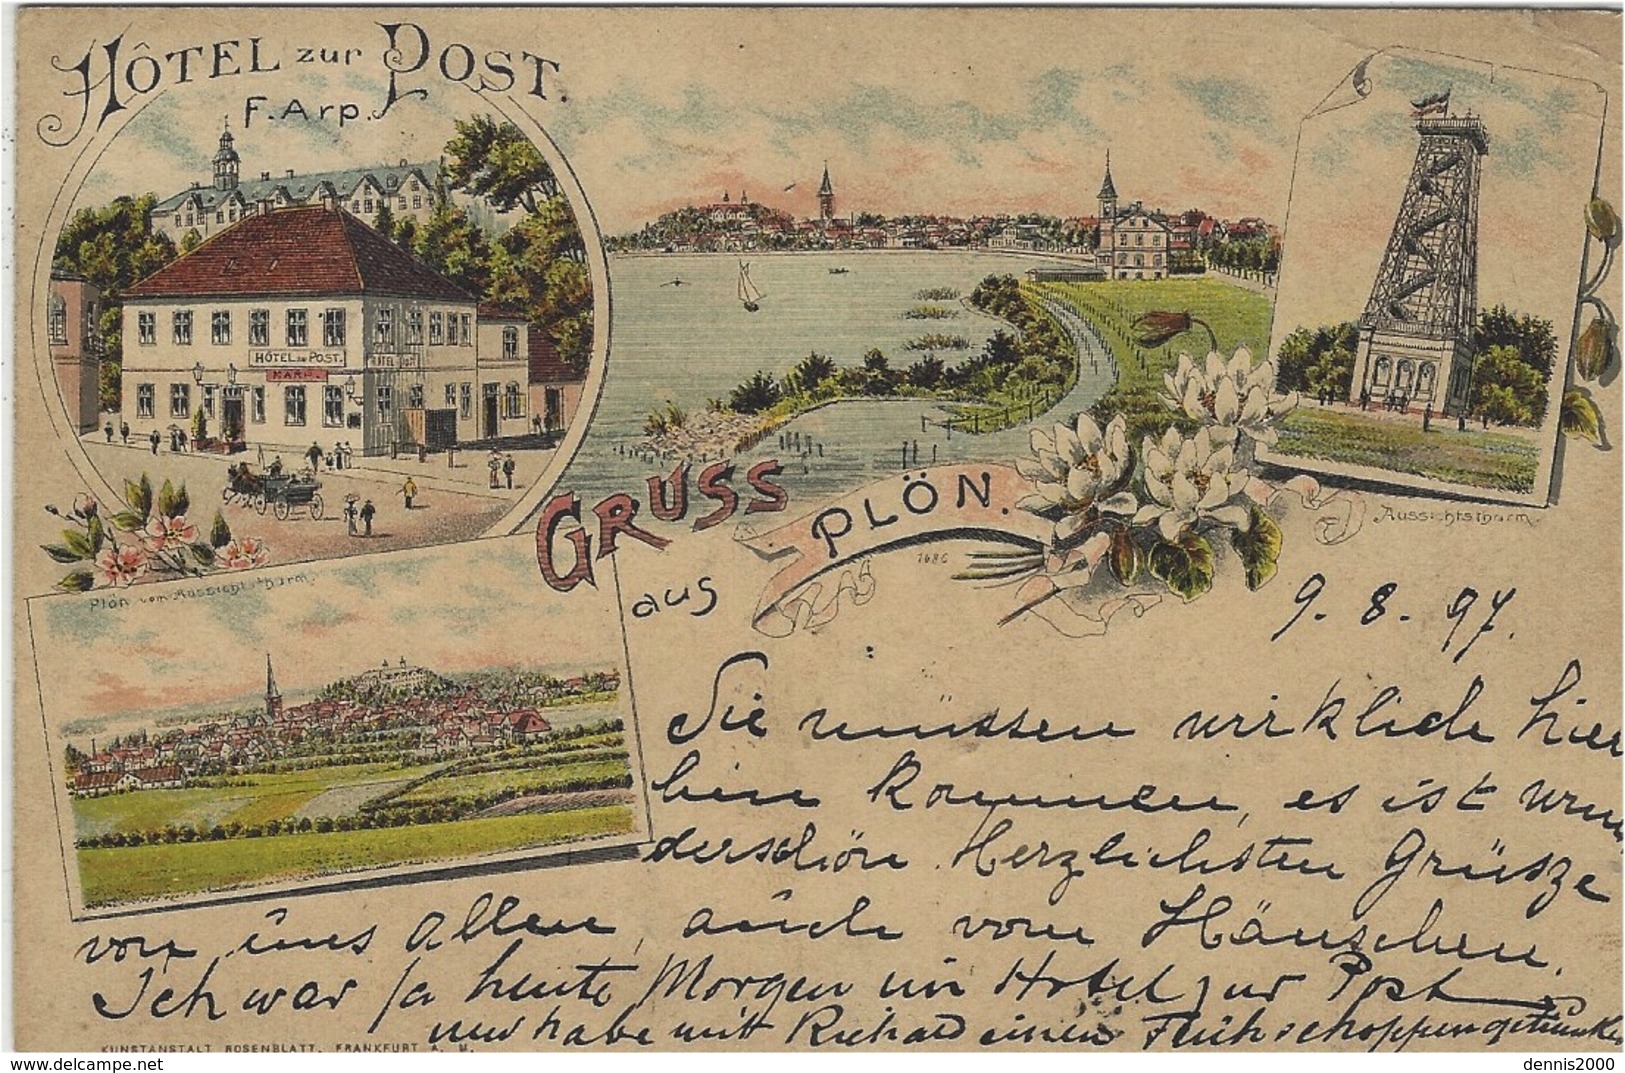 HÔTEL zur POST.
F. Arp.
HÔTEL zur POST.
HÔTEL POST
F. ARP.
GRUSS
aus
PLÖN.
1686
Aussichtsthurm.
Plön vom Aussichtsthurm.
9. 8. 97.
Sie müssen wirklich hier
hin kommen, es ist wun
derschön. Herzlichsten Grüsze
von uns allen, auch vom Hänschen.
Ich war ja heute Morgen im Hotel zur Post
und habe mit Richard einen Frühschoppen getrunken
KUNSTANSTALT ROSENBLATT, FRANKFURT A. M.
dennis2000